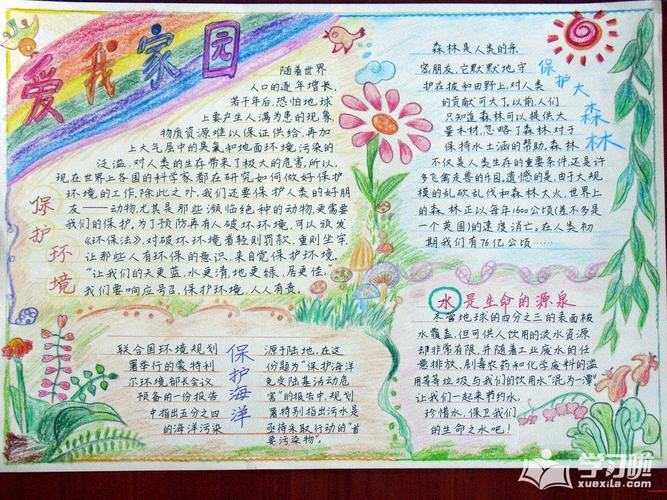 爱我家园
随着世界
人口的逐年增长,
若干年后,恐怕地球
上要产生人满为患的现象
物质资源难以保证供给,再加
上大气层中的臭氧和地面环境污染的
泛滥,对人类的生存带来了极大的危害,所以,
现在世界上各国的科学家都在研究如何做好保护
环境的工作,除此之外,我们还要保护人类的好朋
友——动物,尤其是那些濒临绝种的动物,更需要
我们的保护,为了预防再有人破坏环境,可以颁发
《环保法》,对破坏环境者轻则罚款,重则坐牢,
让那些人有环保的意识,来自觉保护环境,
“让我们的天更蓝,水更清,地更绿,居更佳,”
我们要响应号召,保护环境,人人有责。
保护环境
森林是人类的亲
密朋友,它默默地守
护在坡和田野上,对人类
的贡献可大了,以前,人们
只知道森林可以提供大
量木材,忽略了森林对于
保持水土涵的帮助,森林
不仅是人类生存的重要条件,还是许
多飞禽走兽的乐园,遗憾的是,由于大规
模的乱砍乱伐和森林大火,世界上
的森林正以每年1600公顷(差不多是
一个英国)的速度消亡,在人类初
期我们有76亿公顷……
保护大森林
联合国环境规划
署举行的蒙特利
尔环境部长会议
预备的一份报告
中指出五分之四
的海洋污染
保护海洋
源于陆地,在这
份题为“保护海洋
免受陆基活动危
害”的报告中,规划
署特别指出污水是
亟待采取行动的“首
要污染物”。
水是生命的源泉
尽管地球的四分之三的表面被
水覆盖,但可供人饮用的淡水资源
却非常有限,并随着工业废水的任
意排放,剧毒农药和化学废料的滥
用等等垃圾与我们的饮用水“混为一潭”
让我们一起来节约水,
珍惜水,保卫我们
的生命之水吧!
学习啦
xuexila.com